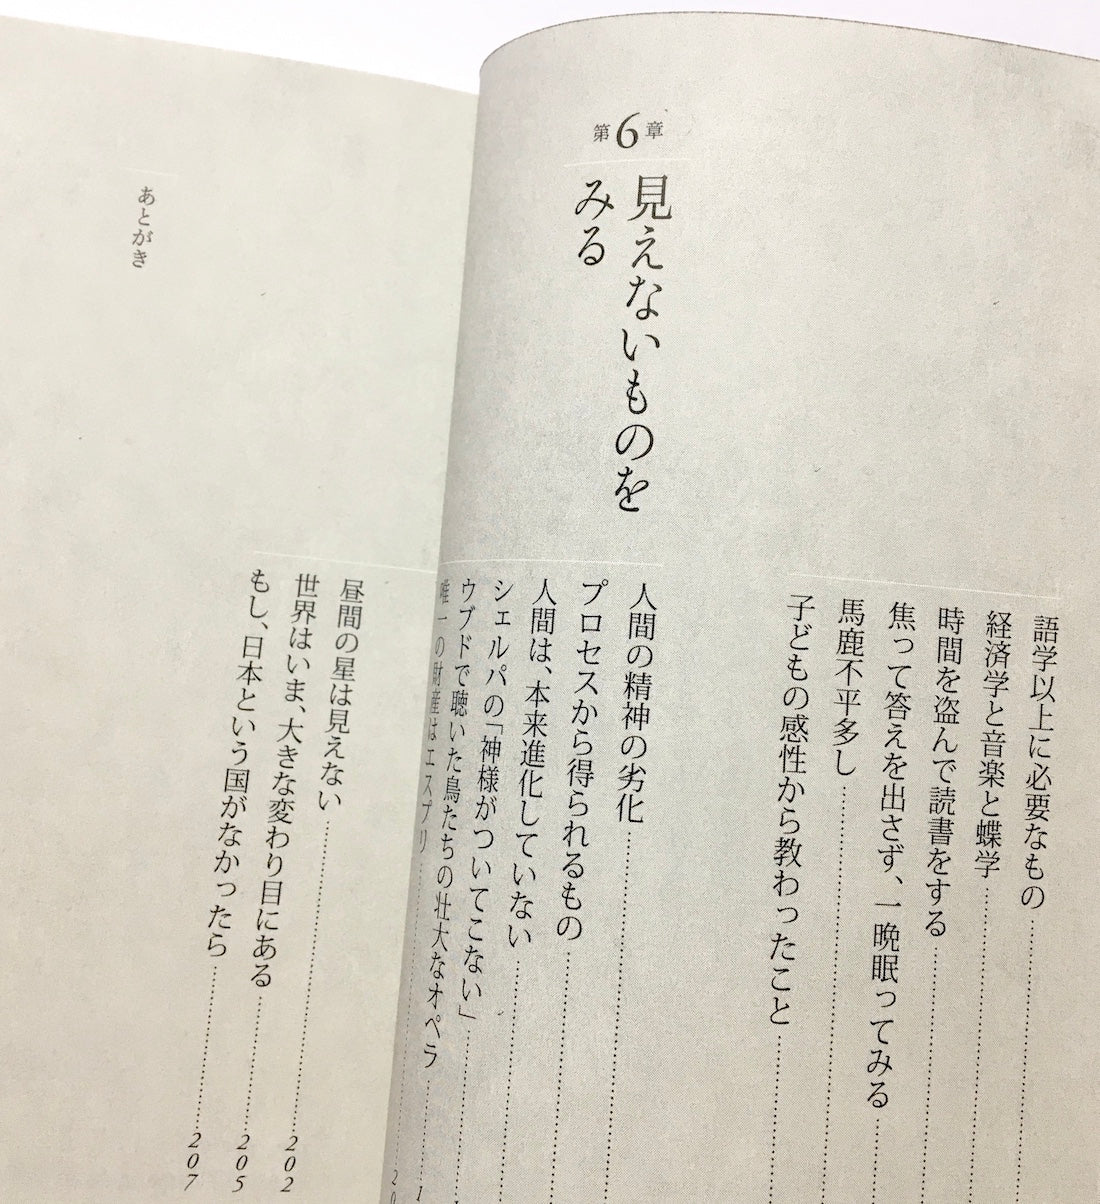 語学以上に必要なもの
経済学と音楽と蝶学
時間を盗んで読書をする
焦って答えを出さず、一晩眠ってみる
馬鹿不平多し
子どもの感性から教わったこと
第6章
見えないものを
みる
人間の精神の劣化
プロセスから得られるもの
人間は、本来進化していない
シェルパの「神様がついてこない」
ウブドで聴いた鳥たちの壮大なオペラ
唯一の財産はエスプリ
昼間の星は見えない 202
世界はいま、大きな変わり目にある 205
もし、日本という国がなかったら 207
あとがき